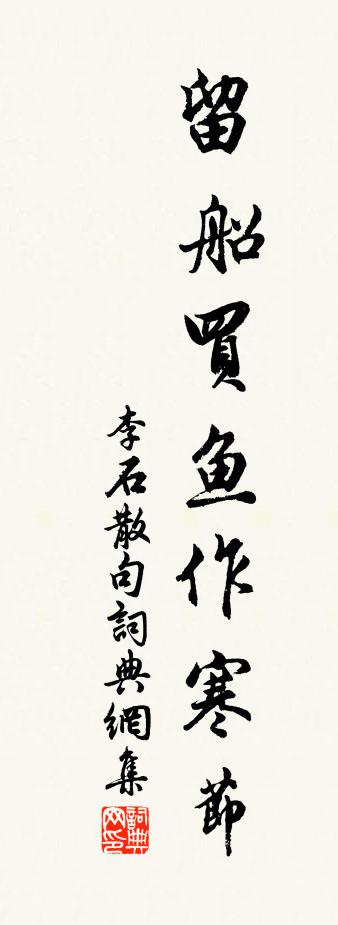 留船買魚作寒節
李石散句詞典網集
詞典网印